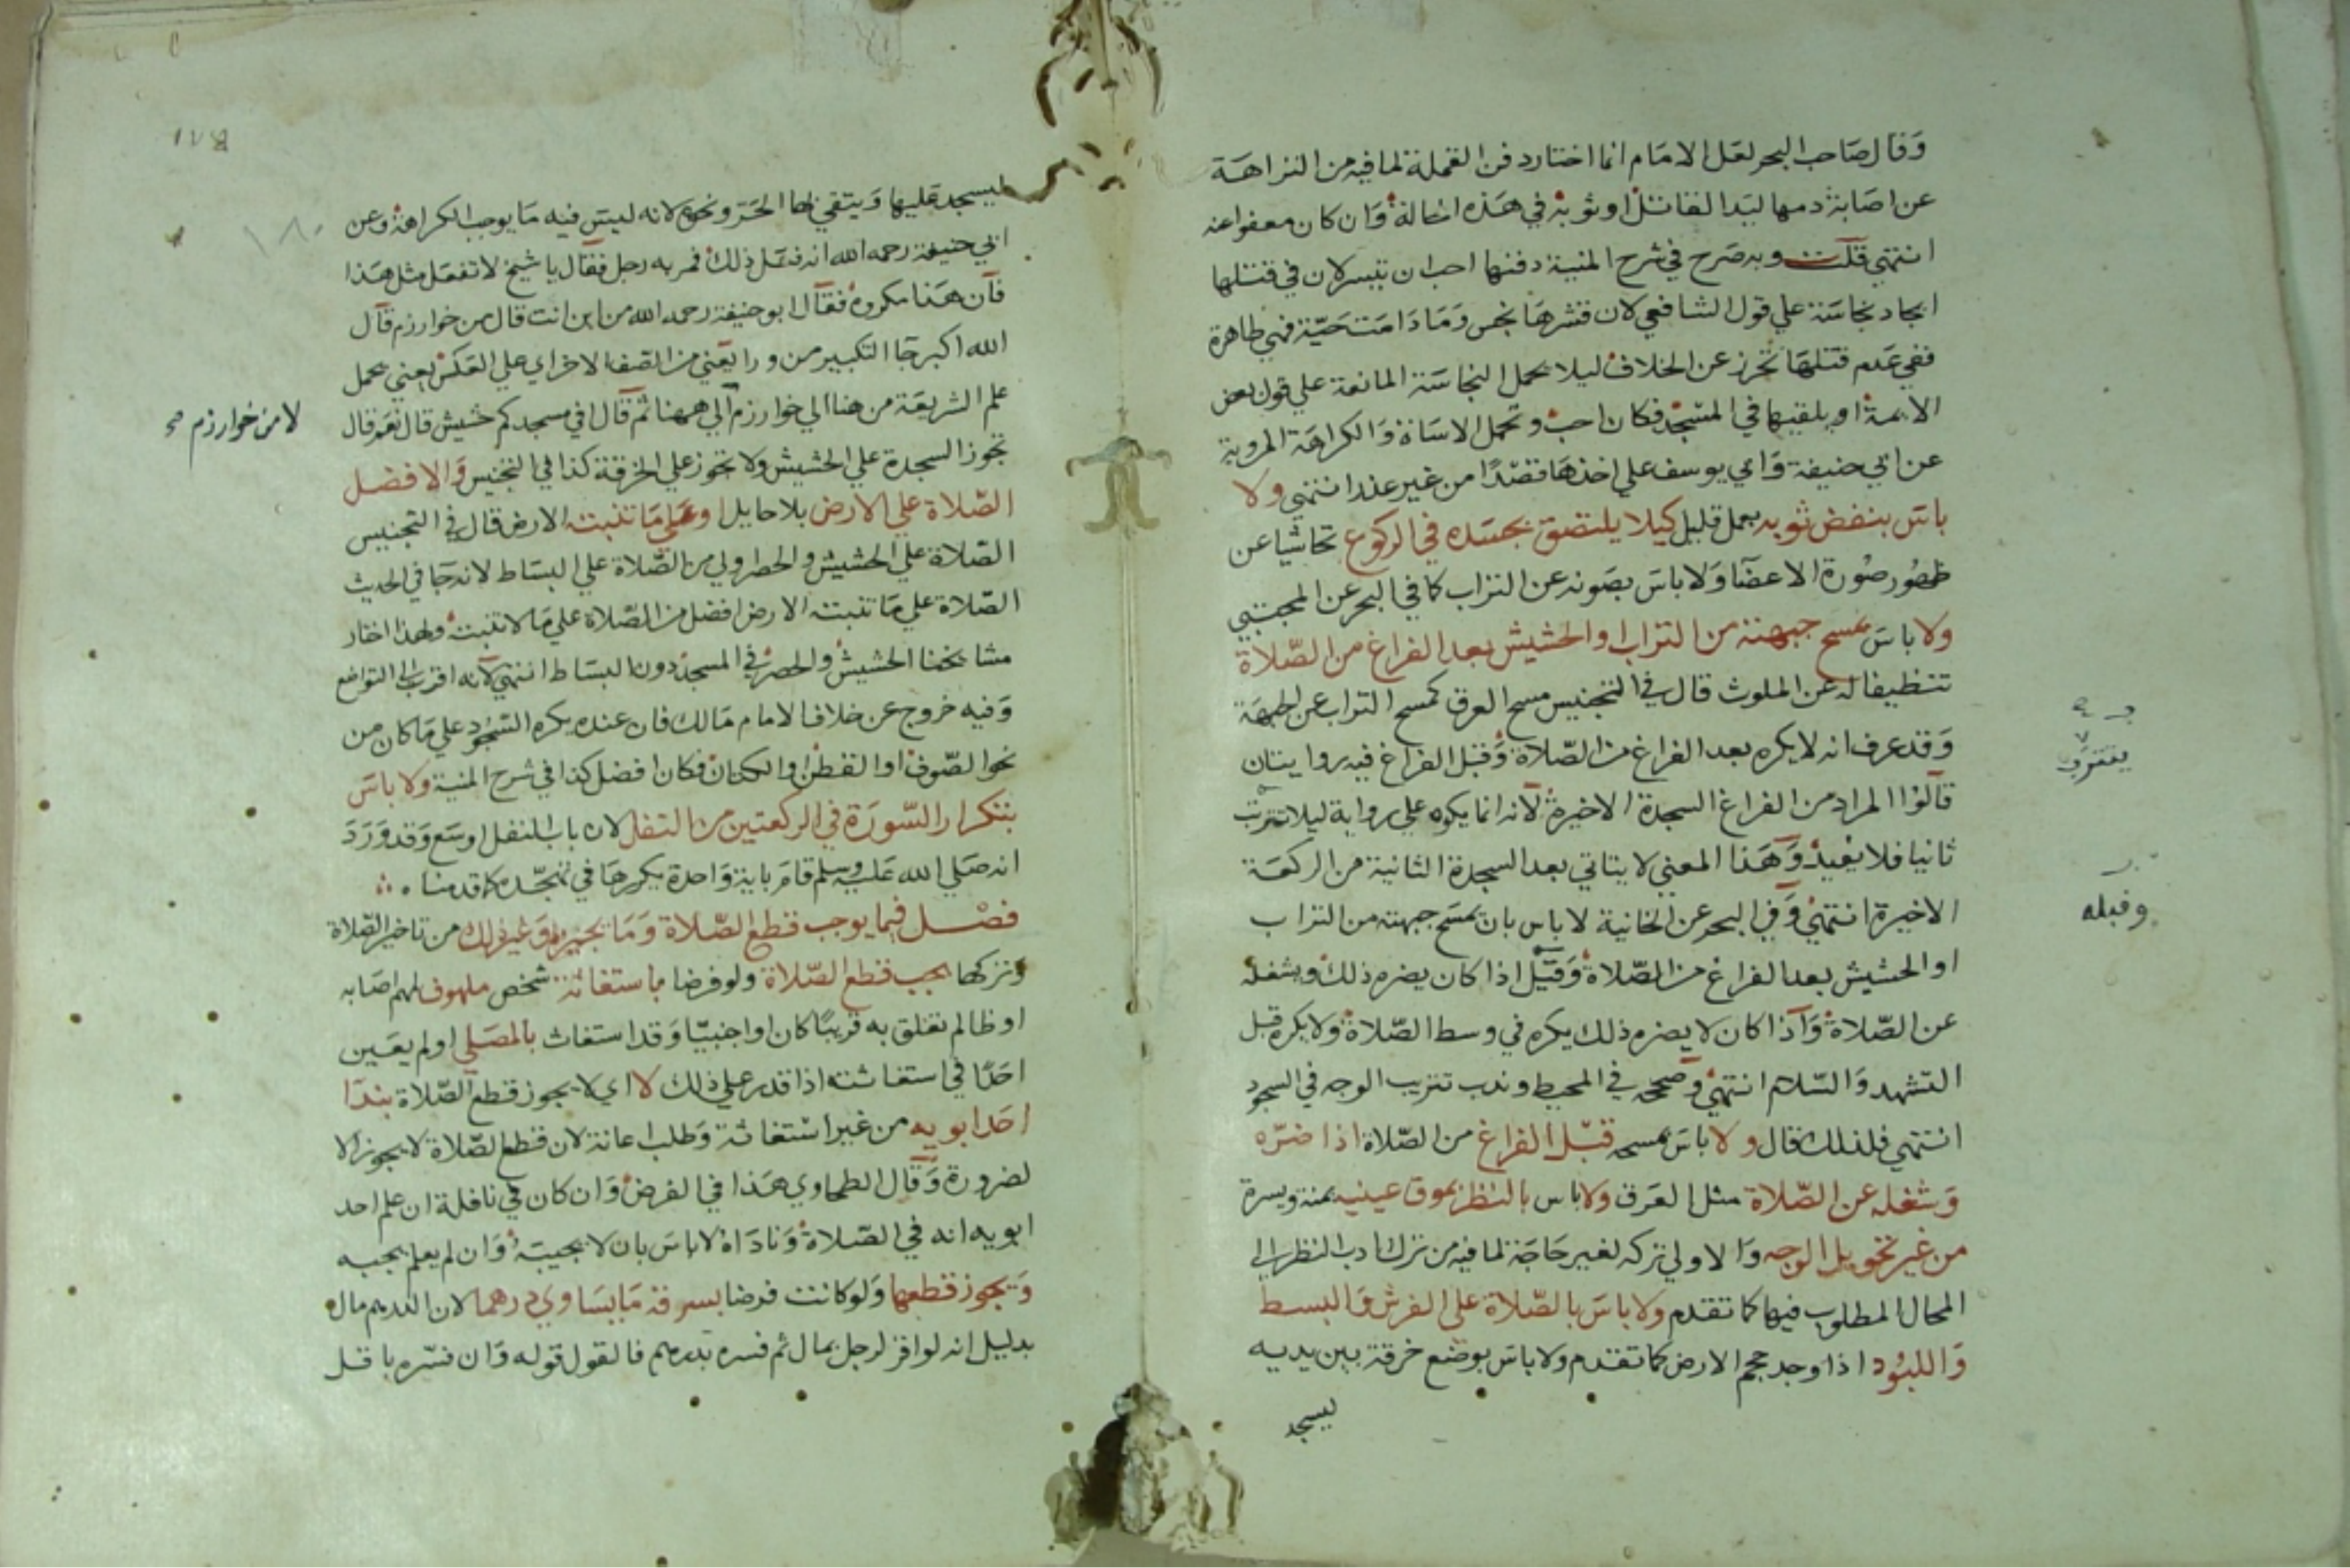 وقال صاحب البحر لعل الامام انما اختار دفن القملة لما فيه من النزاهة
عن اصابة دمها ليد القاتل او ثوبه في هذه الحالة وان كان معفوا عنه
انتهي قلت وبه صرح في شرح المنية دفنها احب ان تيسر لان في قتلها
ايجاد نجاسة علي قول الشافعي لان قشرها نجس وما دامت حية فهي طاهرة
ففي عدم قتلها تحرز عن الخلاف ليلا يحمل النجاسة المانعة علي قول بعض
الايمة او يلقيها في المسجد فكان احب وتحمل الاساة والكراهة المروية
عن ابي حنيفة وابي يوسف علي اخذها قصدا من غير عذر انتهي ولا
باس بنفض ثوبه بعمل قليل كيلا يلتصق بجسده في الركوع تحاشيا عن
ظهور صورة الاعضا ولا باس بصونه عن التراب كما في البحر عن المجتبي
ولا باس بمسح جبهته من التراب او الحشيش بعد الفراغ من الصلاة
تنظيفا له عن الملوث قال في التجنيس مسح العرق كمسح التراب عن الجبهة
وقد عرف انه لا يكره بعد الفراغ من الصلاة وقبل الفراغ فيه روايتان
قالوا المراد من الفراغ السجدة الاخيرة لانه انما يكره علي رواية ليلا تتترب
ثانيا فلا يفيد وهذا المعني لا يتاتي بعد السجدة الثانية من الركعة
الاخيرة انتهي وفي البحر عن الخانية لا باس بان يمسح جبهته من التراب
او الحشيش بعد الفراغ من الصلاة وقبل اذا كان يضره ذلك ويشغله
عن الصلاة واذا كان لا يضره ذلك يكره في وسط الصلاة ولا يكره قبل
التشهد والسلام انتهي وصححه في المحيط وندب تتريب الوجه في السجود
انتهي فلذلك قال ولا باس بمسحه قبل الفراغ من الصلاة اذا ضره
وشغله عن الصلاة مثل العرق ولا باس بالنظر بموق عينيه يمنة ويسرة
من غير تحويل الوجه والاولي تركه لغير حاجة لما فيه من ترك ادب النظر الي
المحال المطلوب فيها كما تقدم ولا باس بالصلاة علي الفرش والبسط
واللبود اذا وجد حجم الارض كما تقدم ولا باس بوضع خرقة بين يديه
ليسجد
يتترب
وقبله
ليسجد عليها ويتقي بها الحر ونحوه لانه ليس فيه ما يوجب الكراهة وعن
ابي حنيفة رحمه الله انه فعل ذلك فمر به رجل فقال يا شيخ لا تفعل مثل هذا
فان هذا مكروه فقال ابو حنيفة رحمه الله من اين انت قال من خوارزم قال
الله اكبر جا التكبير من ورا يعني من الصف الاخر اي علي العكس يعني يحمل
علم الشريعة من هنا الي خوارزم الي ههنا ثم قال افي مسجدكم حشيش قال نعم قال
تجوز السجدة علي الحشيش ولا تجوز علي الخرقة كذا في التجنيس والافضل
الصلاة علي الارض بلا حايل او علي ما تنبته الارض قال في التجنيس
الصلاة علي الحشيش والحصر اولي من الصلاة علي البساط لانه جا في الحديث
الصلاة علي ما تنبته الارض افضل من الصلاة علي ما لا تنبته ولهذا اختار
مشايخنا الحشيش والحصر في المسجد دون البساط انتهي لانه اقرب الي التواضع
وفيه خروج عن خلاف الامام مالك فان عنده يكره السجود علي ما كان من
نحو الصوف او القطن او الكتان فكان افضل كذا في شرح المنية ولا باس
بتكرار السورة في الركعتين من النفل لان باب النفل اوسع وقد ورد
انه صلي الله عليه وسلم قام باية واحدة يكررها في تهجده كما قدمنا
فصل فيما يوجب قطع الصلاة وما يجيزه وغير ذلك من تاخير الصلاة
وتركها يجب قطع الصلاة ولو فرضا باستغاثة شخص ملهوف لمهم اصابه
او ظالم تعلق به قريبا كان او اجنبيا وقد استغاث بالمصلي او لم يعين
احدا في استغاثته اذا قدر علي ذلك لا اي لا يجوز قطع الصلاة بندا
احد ابويه من غير استغاثة وطلب اعانة لان قطع الصلاة لا يجوز الا
لضرورة وقال الطحاوي هذا في الفرض وان كان في نافلة ان علم احد
ابويه انه في الصلاة وناداه لا باس بان لا يجيبه وان لم يعلم يجيبه
ويجوز قطعها ولو كانت فرضا بسرقة ما يساوي درهما لان الدرهم مال
بدليل انه لو اقر لرجل بمال ثم فسره بدرهم فالقول قوله وان فسره باقل
لا من خوارزم صح
١٨٠